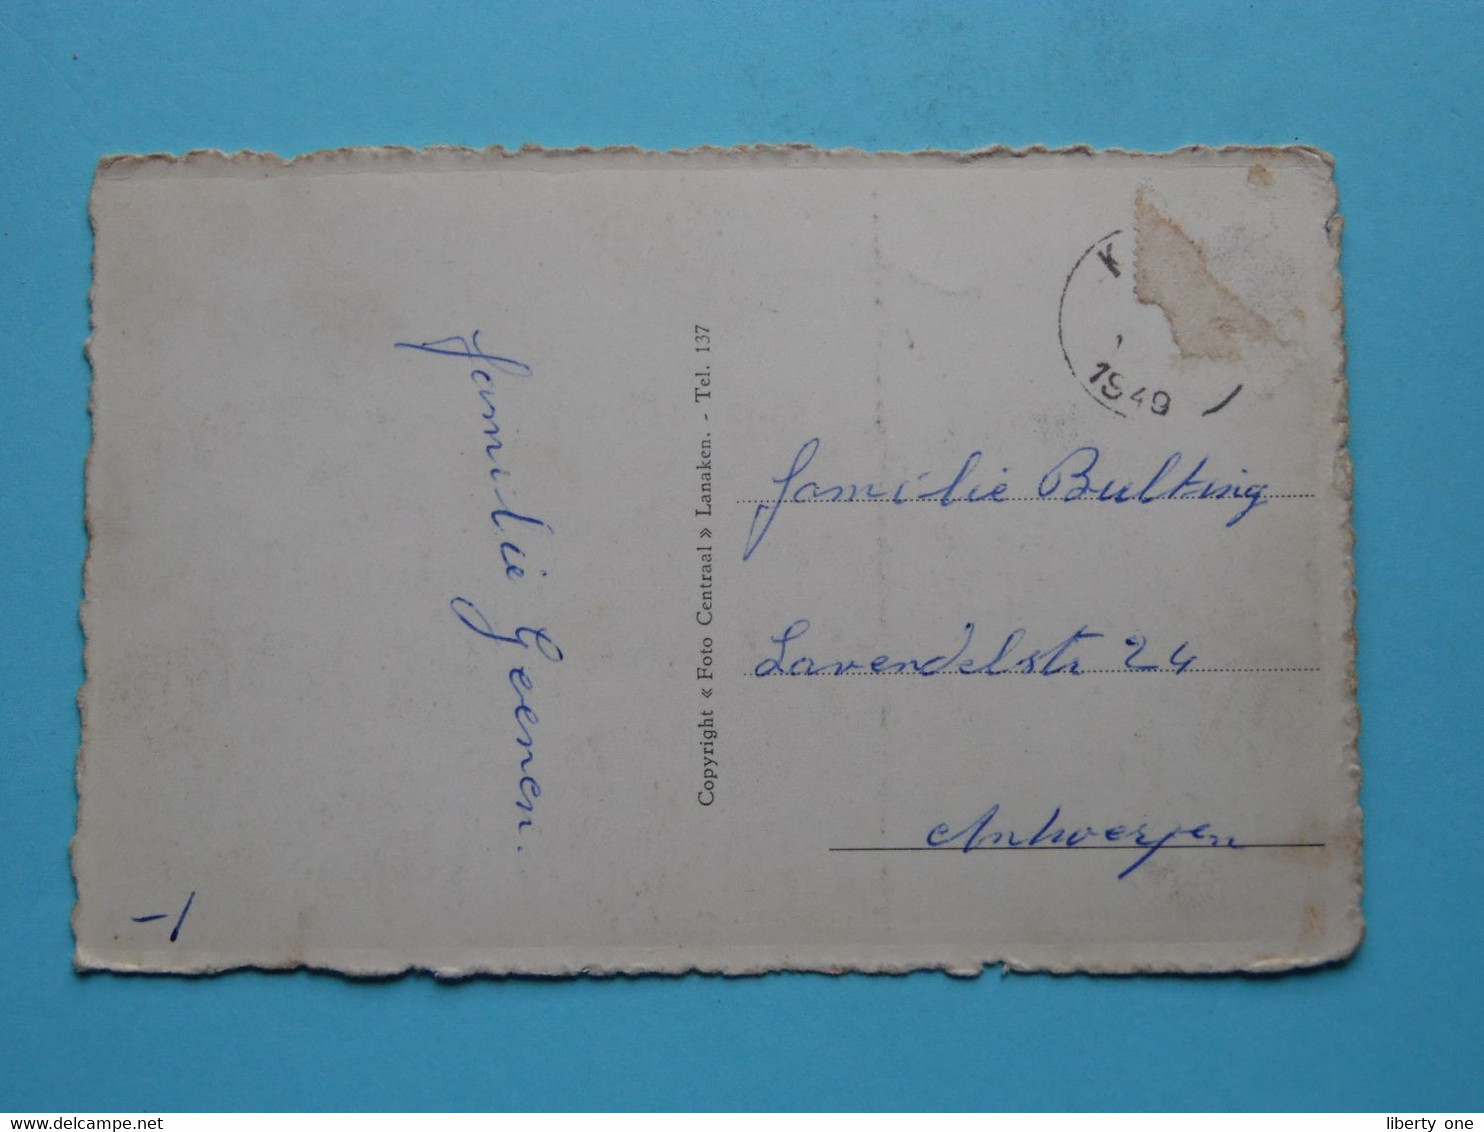 familie Goenen.
Copyright « Foto Centraal » Lanaken. - Tel. 137
K
1949
familie Bulting
Lavendelstr 24
Antwerpen
-1
www.delcampe.net
liberty one